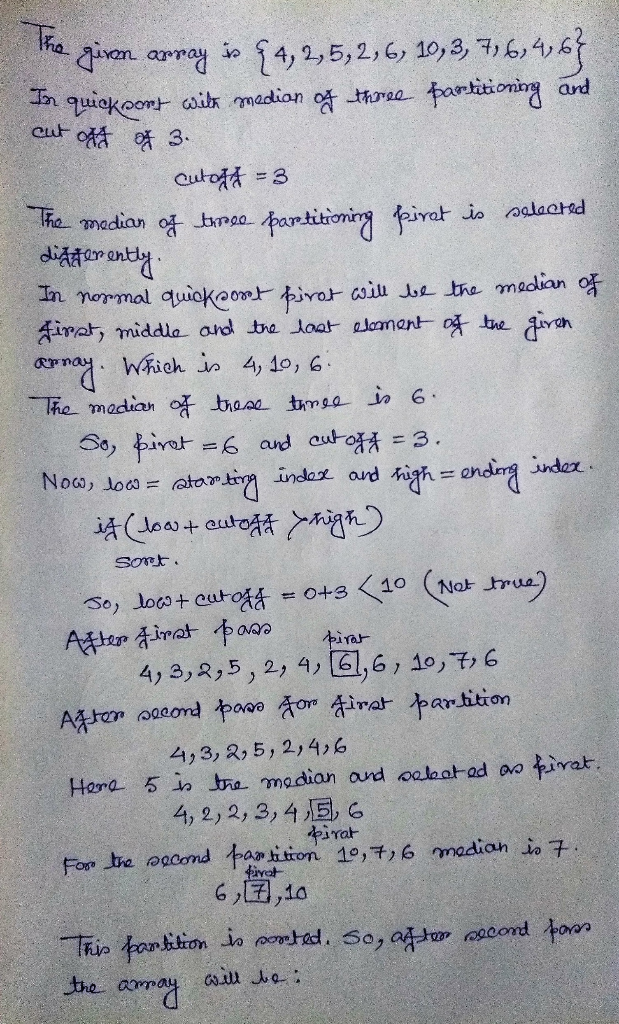 The given array is {4, 2, 5, 2, 6, 10, 3, 7, 6, 4, 6}
In quicksort with median of three partitioning and
cut off of 3.
cutoff = 3
The median of three partitioning pivot is selected
differently.
In normal quicksort pivot will be the median of
first, middle and the last element of the given
array. Which is 4, 10, 6.
The median of these three is 6.
So, pivot = 6 and cutoff = 3.
Now, low = starting index and high = ending index.
if (low + cutoff > high)
sort.
So, low + cutoff = 0+3 < 10 (Not true)
After first pass
pivot
4, 3, 2, 5, 2, 4, 6, 6, 10, 7, 6
After second pass for first partition
4, 3, 2, 5, 2, 4, 6
Here 5 is the median and selected as pivot.
4, 2, 2, 3, 4, 5, 6
pivot
For the second partition 10, 7, 6 median is 7.
pivot
6, 7, 10
This partition is sorted. So, after second pass
the array will be :